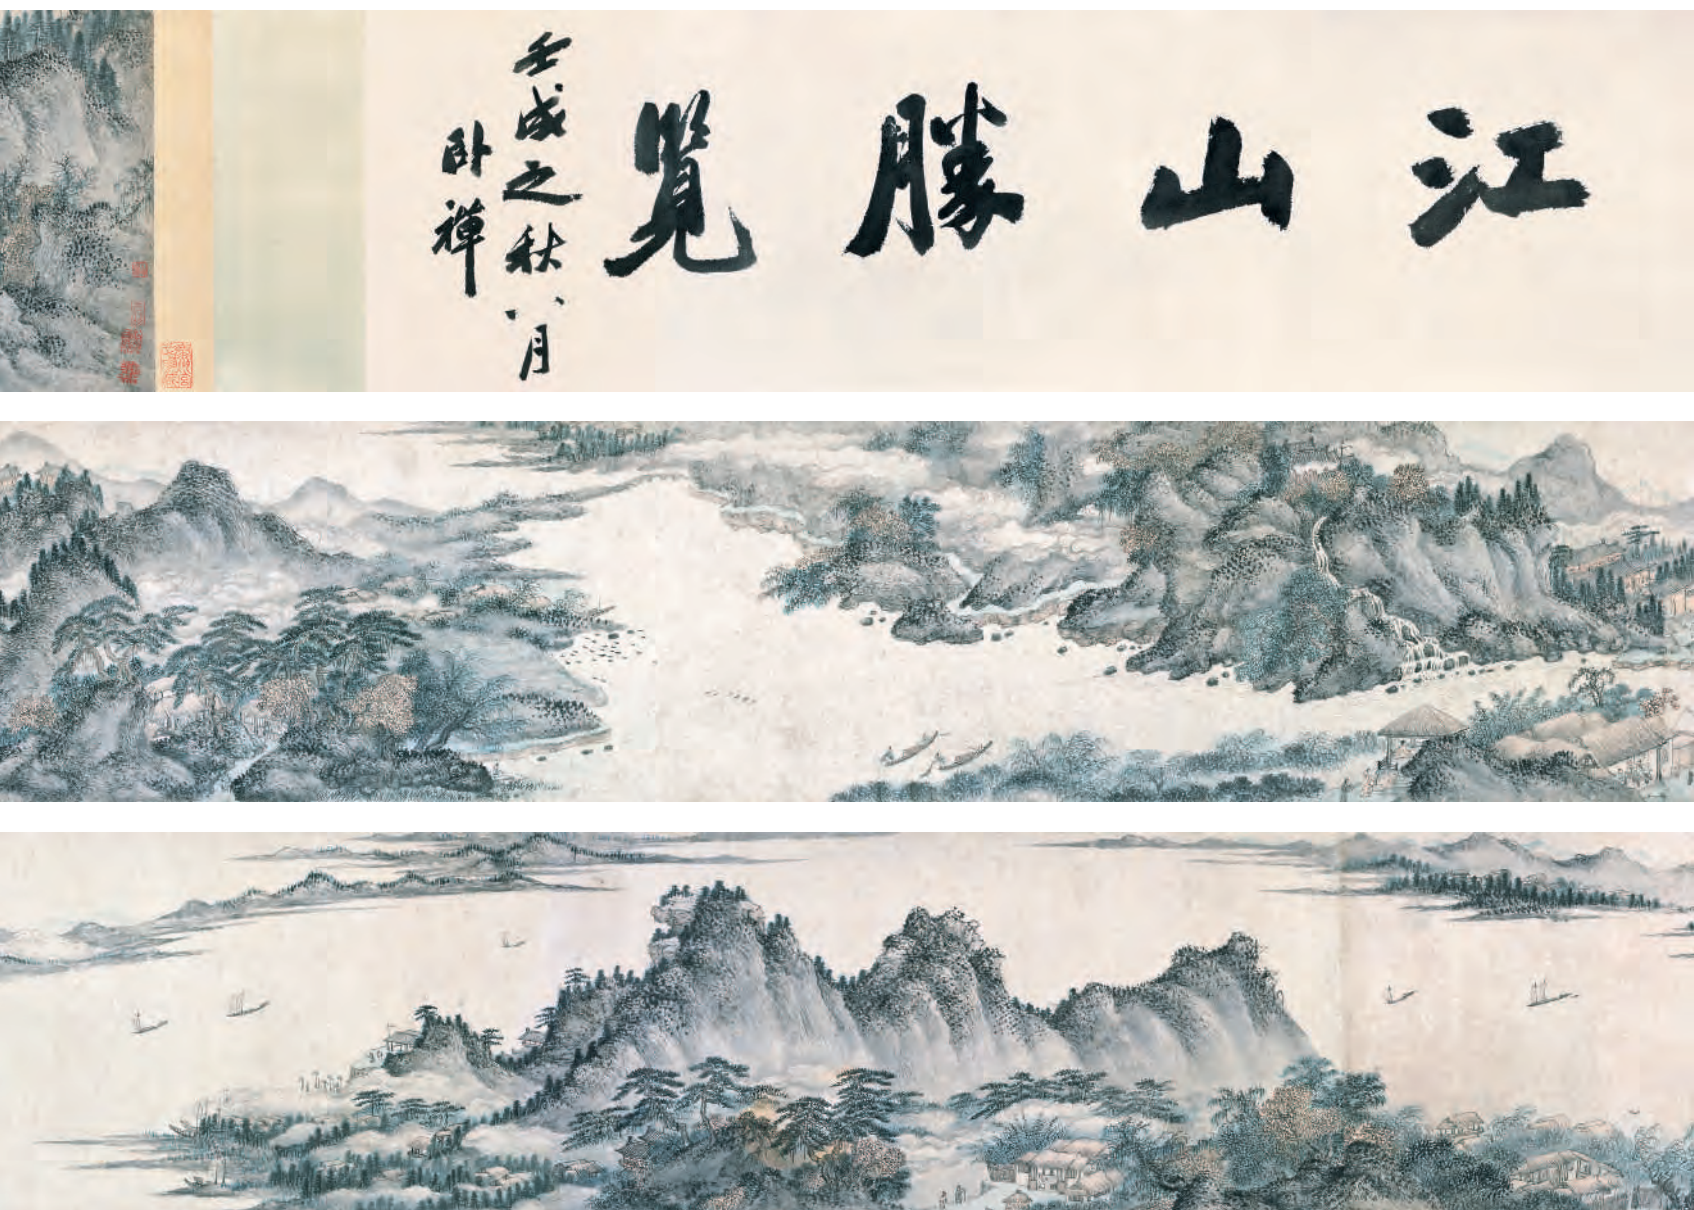 江山勝覽
壬戌之秋八月
卧禪